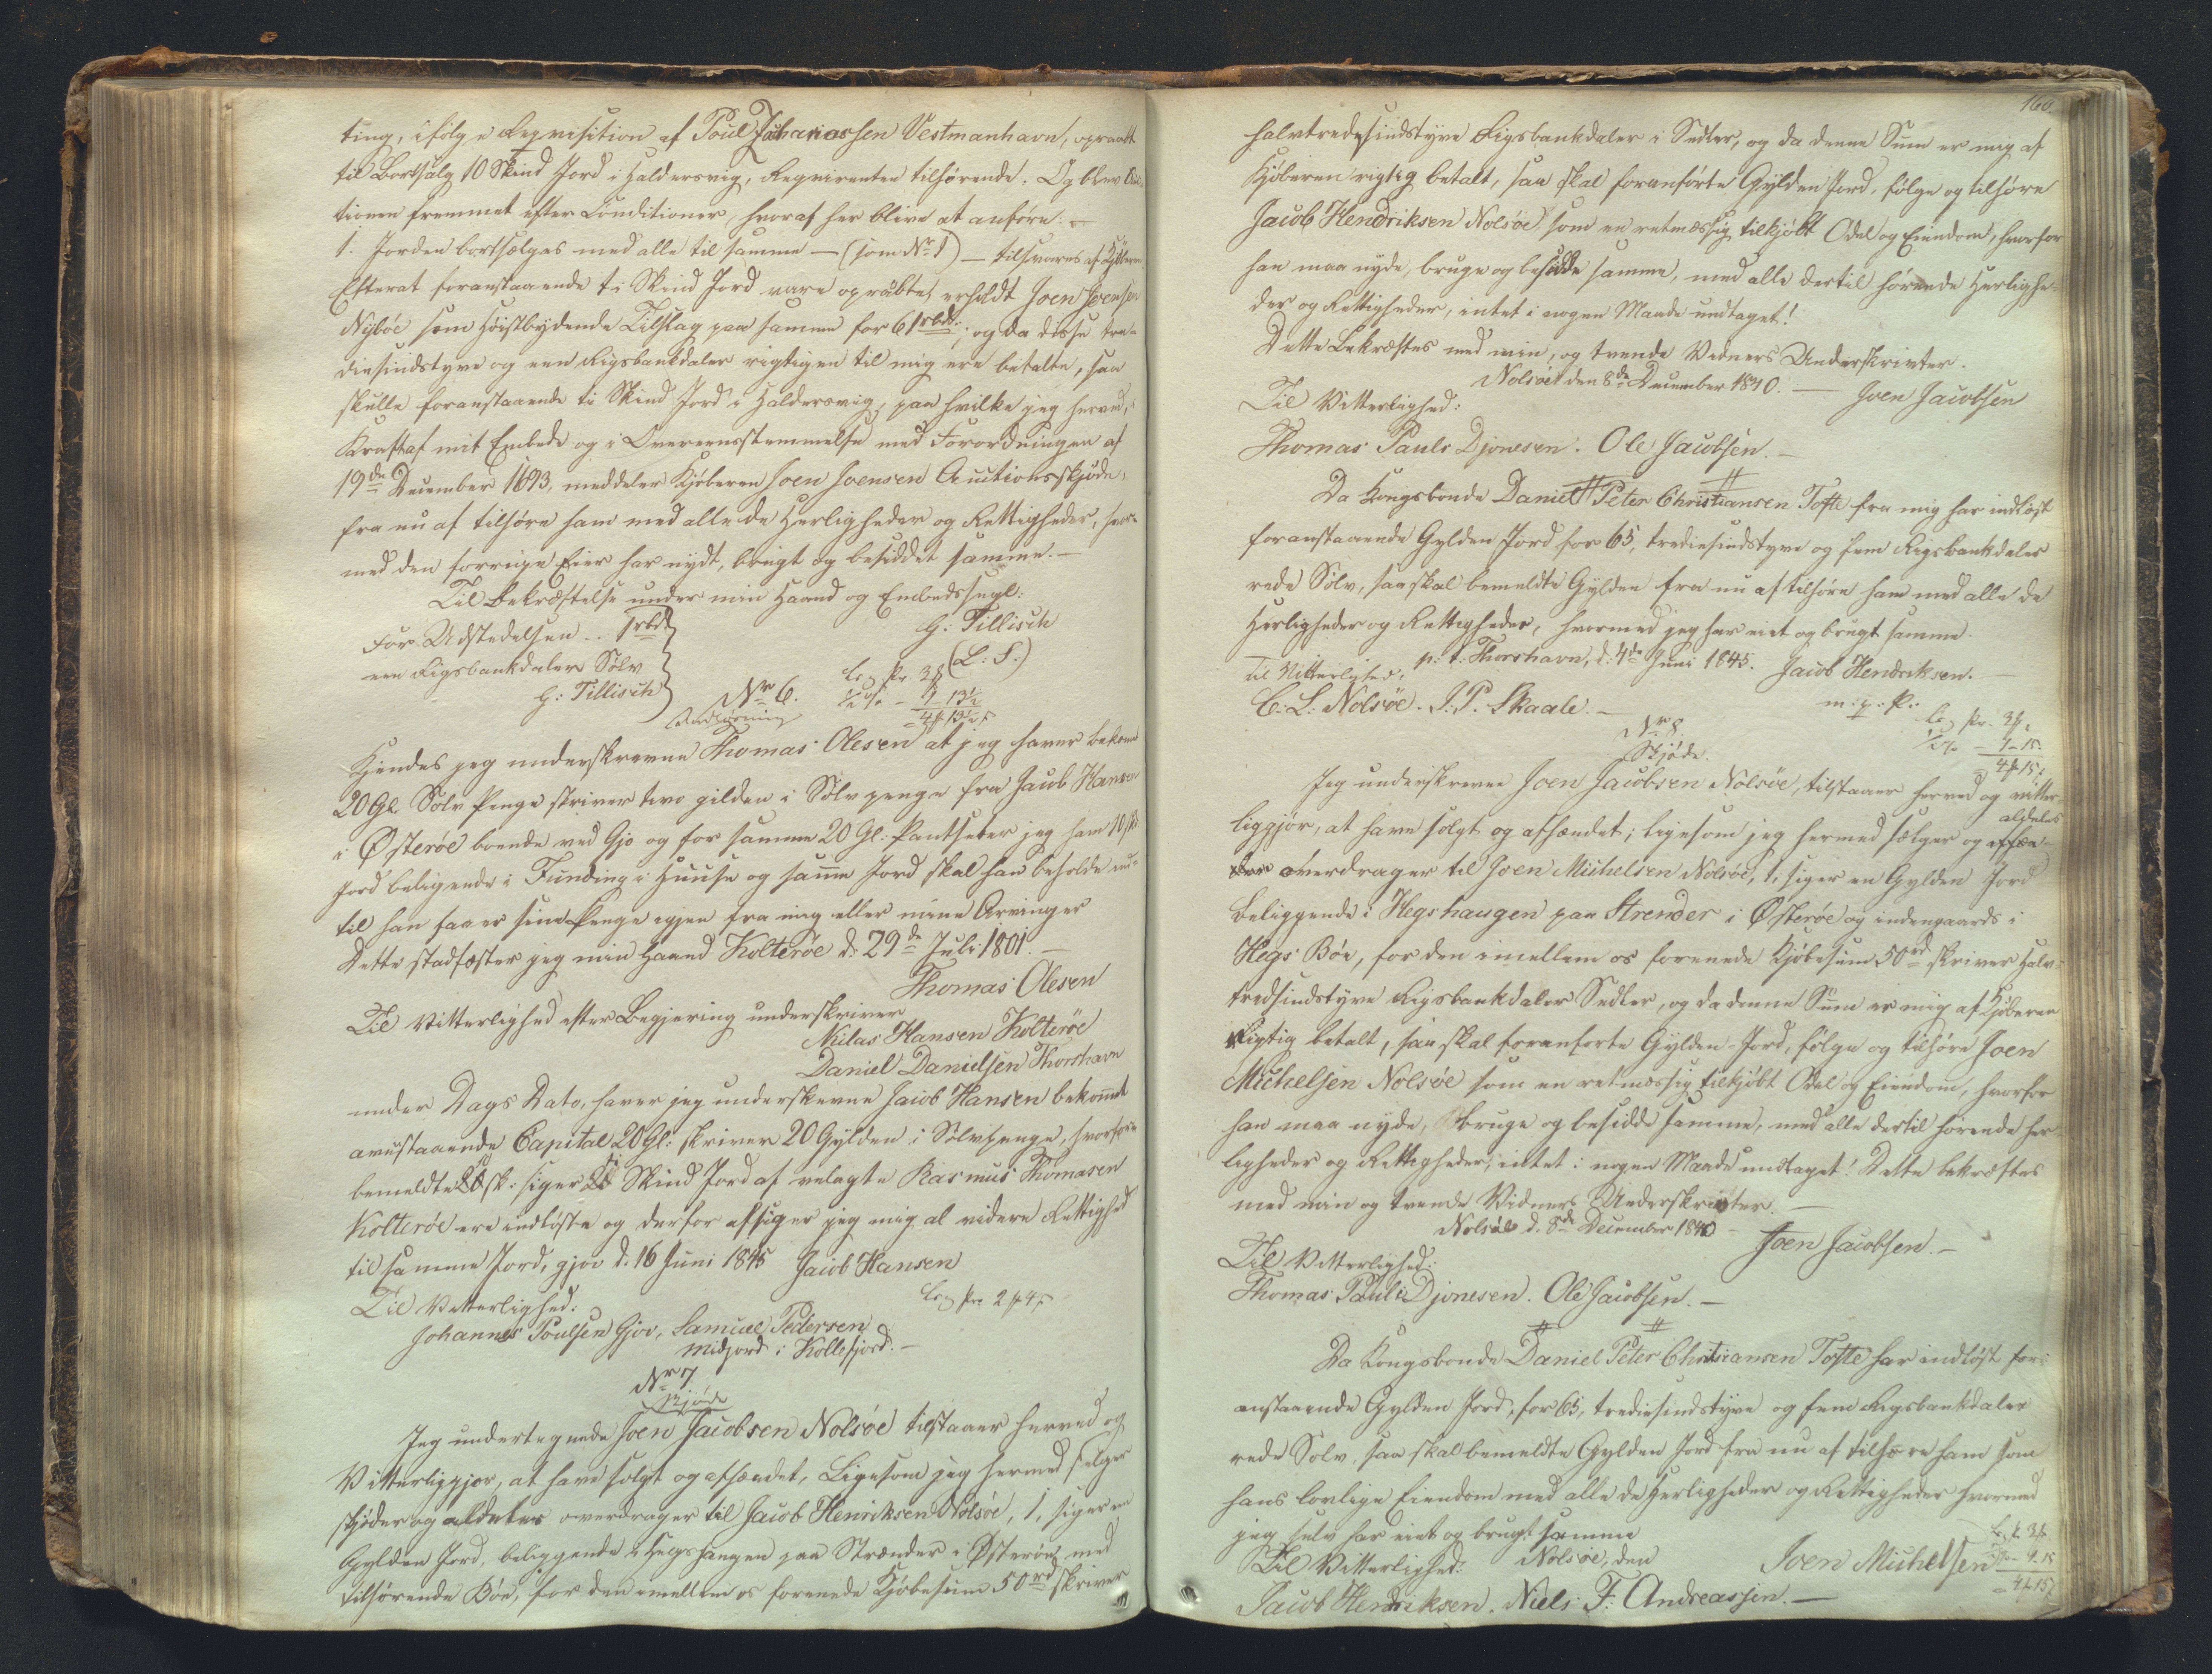 ting, ifølge Reqvisition af Poul Zachariassen Vestmanhavn, opraabt
til Bortsalg 10 Skind Jord i Haldersvig, Reqvirenten tilhørende. Og blev Auc-
tionen fremmet efter Conditioner, hvoraf her blive at anføre: —
1. Jorden bortsælges med alle til samme — (som No 1) — tilsvares af Kjøberen.
Efterat foranstaaende ti Skind Jord vare opraabte, erholdt Joen Joensen
Nybøe som Høistbydende Tilslag paa samme for 61 rbd.; og da disse tre-
diesindstyve og een Rigsbankdaler rigtigen til mig ere betalte, saa
skulle foranstaaende ti Skind Jord i Haldersvig, paa hvilke jeg herved, i
Kraft af mit Embede og i Overeensstemmelse med Forordningen af
19de December 1693, meddeler Kjøberen Joen Joensen Auctionsskjøde,
fra nu af tilhøre ham med alle de Herligheder og Rettigheder, hvor-
med den forrige Eier har nydt, brugt og besiddet samme. —
Til Bekræftelse under min Haand og Embedssegl:
For Udstedelsen .. 1 rbd
G. Tillisch
een Rigsbankdaler Sølv
(L: S:)
G: Tillisch
No 6.
Indløsning
Kjendes jeg underskrevne Thomas Olesen at jeg haver bekomt
20 Gl. Sølv Penge skriver tvo gilden i Sølv penge fra Jacob Hansen
i Østerøe boende ved Gjo og for samme 20 Gl: Pantsetter jeg ham 10 sk
Jord beligende i Funding i Huuse og samme Jord skal han beholde ind-
til han faaer sine Penge igjen fra mig eller mine Arvinger
Dette stadfæster jeg min Haand Kolterøe d: 29de Juli 1801. —
Thomas Olesen
Til Vitterlighed efter Begjering underskriver
Niclas Hansen Kolterøe
Daniel Danielsen Thorshavn
under Dags Dato, haver jeg underskevne Jacob Hansen bekommet
ovenstaaende Capital 20 Gl: skriver 20 Gylden i Sølvpenge, hvorfore
bemeldte 10 sk: siger ti Skind Jord af velagte Rasmus Thomasen
Kolterøe ere indløste og derfor afsiger jeg mig al videre Rettighed
til samme Jord, gjov d. 16 Juni 1845 Jacob Hansen
Til Vitterlighed:
Johannes Poulsen Gjov, Samuel Pedersen
midjord i Kollefjord. —
No 7
Skjøde
Jeg undertegnede Joen Jacobsen Nolsöe tilstaaer herved og
Vitterliggjør, at have solgt og afhændet, Ligesom jeg hermed sælger
skjøder og aldeles overdrager til Jacob Henriksen Nolsöe, 1, siger en
Gylden Jord, beliggende i Hegshaugen paa Strænder i Østerøe med
tilhørende Bøe, for den imellem os forenede Kjøbesum 50 rd skriver
160.
halvtredesindstyve Rigsbankdaler i Sedler, og da denne Sum er mig af
Kjøberen rigtig betalt, saa skal foranførte Gylden Jord, følge og tilhøre
Jacob Hendriksen Nolsøe som en retmæssig tilkjøbt Odel og Eiendom, hvorfor
han maa nyde, bruge og besidde samme, med alle dertil hørende Herlighe-
der og Rettigheder, intet i nogen Maade undtaget!
Dette Bekræftes med min, og tvende Vidners Underskrivter.
Nolsöe den 8de December 1840. — Joen Jacobsen
Til Vitterlighed:
Thomas Pauls Djonesen. Ole Jacobsen. —
Da Kongsbonde Daniel Peter Christiansen Tofte fra mig har indløst
foranstaaende Gylden Jord for 65, trediesindstyve og fem Rigsbankdaler
rede Sølv, saa skal bemeldte Gylden fra nu af tilhøre ham med alle de
Herligheder og Rettigheder, hvormed jeg har eiet og brugt samme.
p: t: Thorshavn, d. 4de Juni 1845. Jacob Hendriksen. —
Til Vitterlighed,
m: p: P:
C. L. Nolsöe. J. P. Skaale. —
No 8.
Skjøde.
Jeg underskrevne Joen Jacobsen Nolsöe, tilstaaer herved og vitter-
liggjør, at have solgt og afhændet; ligesom jeg hermed sælger og aldeles
overdrager til Joen Michelsen Nolsöe, 1, siger en Gylden Jord
beliggende i Hegshaugen paa Strender i Østerøe og indengaards i
Hegs Böe, for den imellem os forenede Kjøbesum 50 rd skriver halv-
tredsindstyve Rigsbankdaler Sedler, og da denne Sum er mig af Kjøberen
Rigtig betalt, saa skal foranførte Gylden-Jord, følge og tilhøre Joen
Michelsen Nolsöe som en retmæssig tilkjøbt Odel og Eiendom, hvorfor
han maa nyde, bruge og besidde samme, med alle dertil hørende her-
ligheder og Rettigheder, intet i nogen Maade undtaget! Dette bekræftes
med min og tvende Vidners Underskrivter. —
Nolsöe d. 8de December 1840 — Joen Jacobsen. —
Til Vitterlighed:
Thomas Pauls Djonesen. Ole Jacobsen. —
Da Kongsbonde Daniel Peter Christiansen Tofte har indløst for-
anstaaende Gylden Jord, for 65, trediesindstyve og fem Rigsbankdaler
rede Sølv, saa skal bemeldte Gylden Jord fra nu af tilhøre ham som
hans lovlige Eiendom med alle de Herligheder og Rettigheder hvormed
jeg selv har eiet og brugt samme
Nolsöe, den Joen Michelsen
Til Vitterlighed:
Jacob Hendriksen. Niels F. Andreassen. —